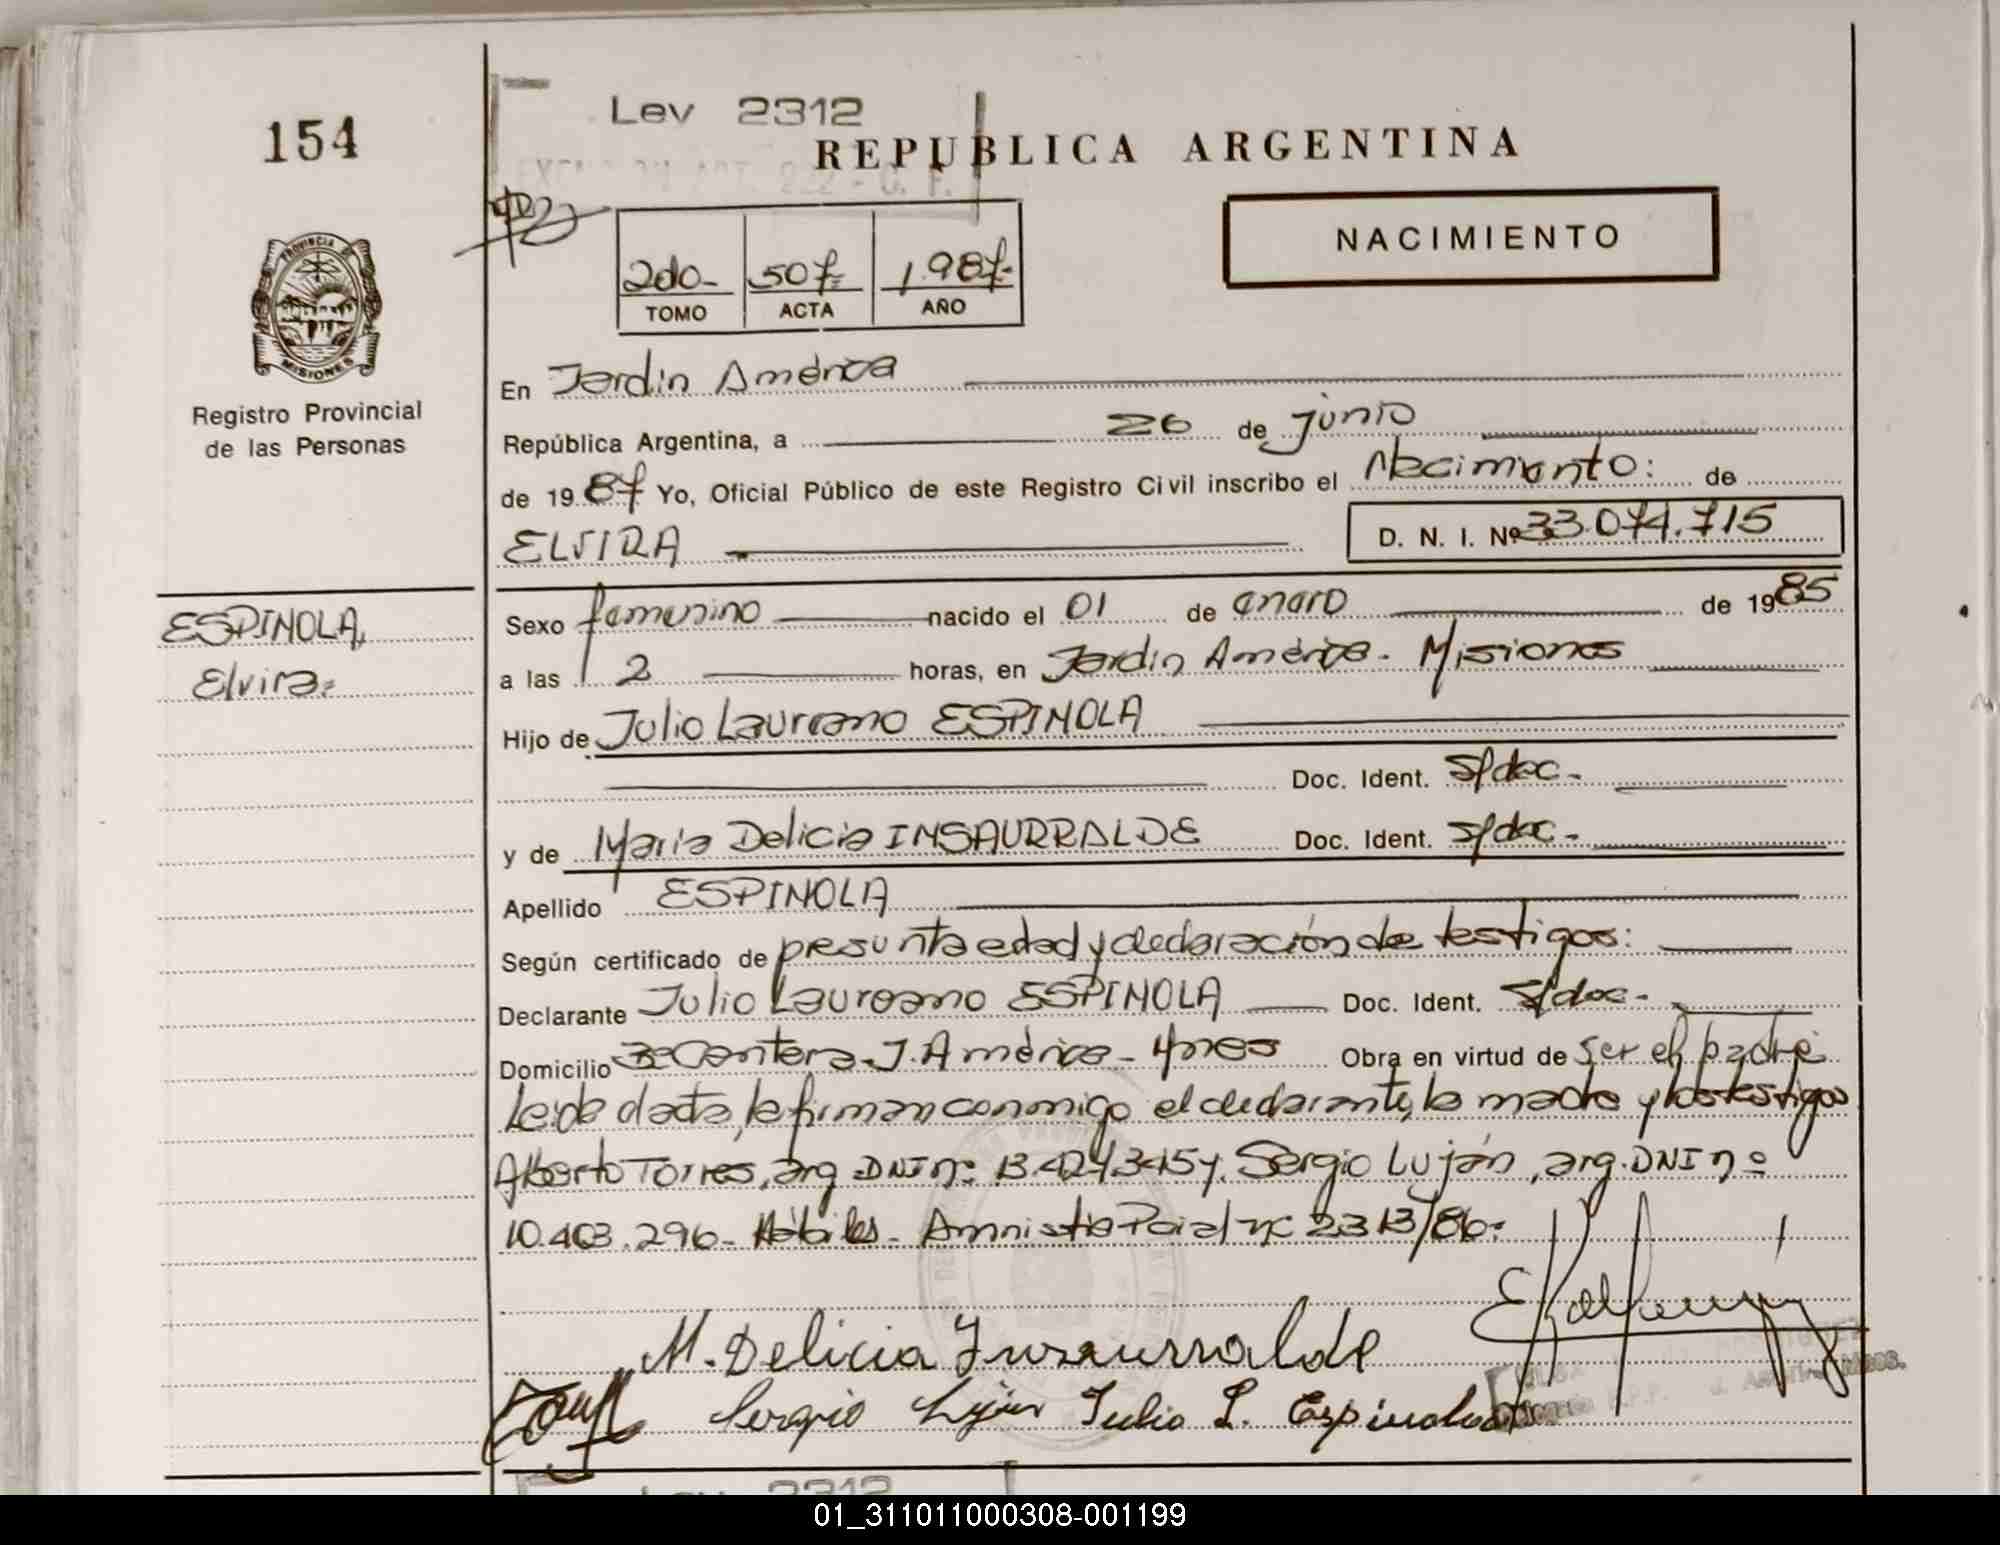 154
Ley 2312
REPUBLICA ARGENTINA
NACIMIENTO
2do- 507= 1.987-
TOMO ACTA AÑO
PROVINCIA DE MISIONES
Registro Provincial
de las Personas
En Jardín América
República Argentina, a 26 de junio
de 1987 Yo, Oficial Público de este Registro Civil inscribo el Nacimiento: de
ELVIRA D. N. I. Nº 33.074.715
ESPINOLA,
Elvira=
Sexo femenino nacido el 01 de enero de 1985
a las 2 horas, en Jardín América- Misiones
Hijo de Julio Laureano ESPINOLA
Doc. Ident. S/doc-
y de María Delicia INSAURRALDE Doc. Ident. S/doc-
Apellido ESPINOLA
Según certificado de presunta edad y declaración de testigos:
Declarante Julio Laureano ESPINOLA Doc. Ident. S/doc-
Domicilio Bº Cantera-J. América- Mnes Obra en virtud de ser el padre
Leída el acta, la firman conmigo el declarante, la madre y los testigos
Alberto Torres, arg. DNI nº 13.424.345 y Sergio Luján, arg. DNI nº
10.403.296- Hábiles- Amnistía Pcial nº 2313/86-
M. Delicia Insaurralde
Sergio Lujan Julio L. Espinola
Ley 2312
01_311011000308-001199